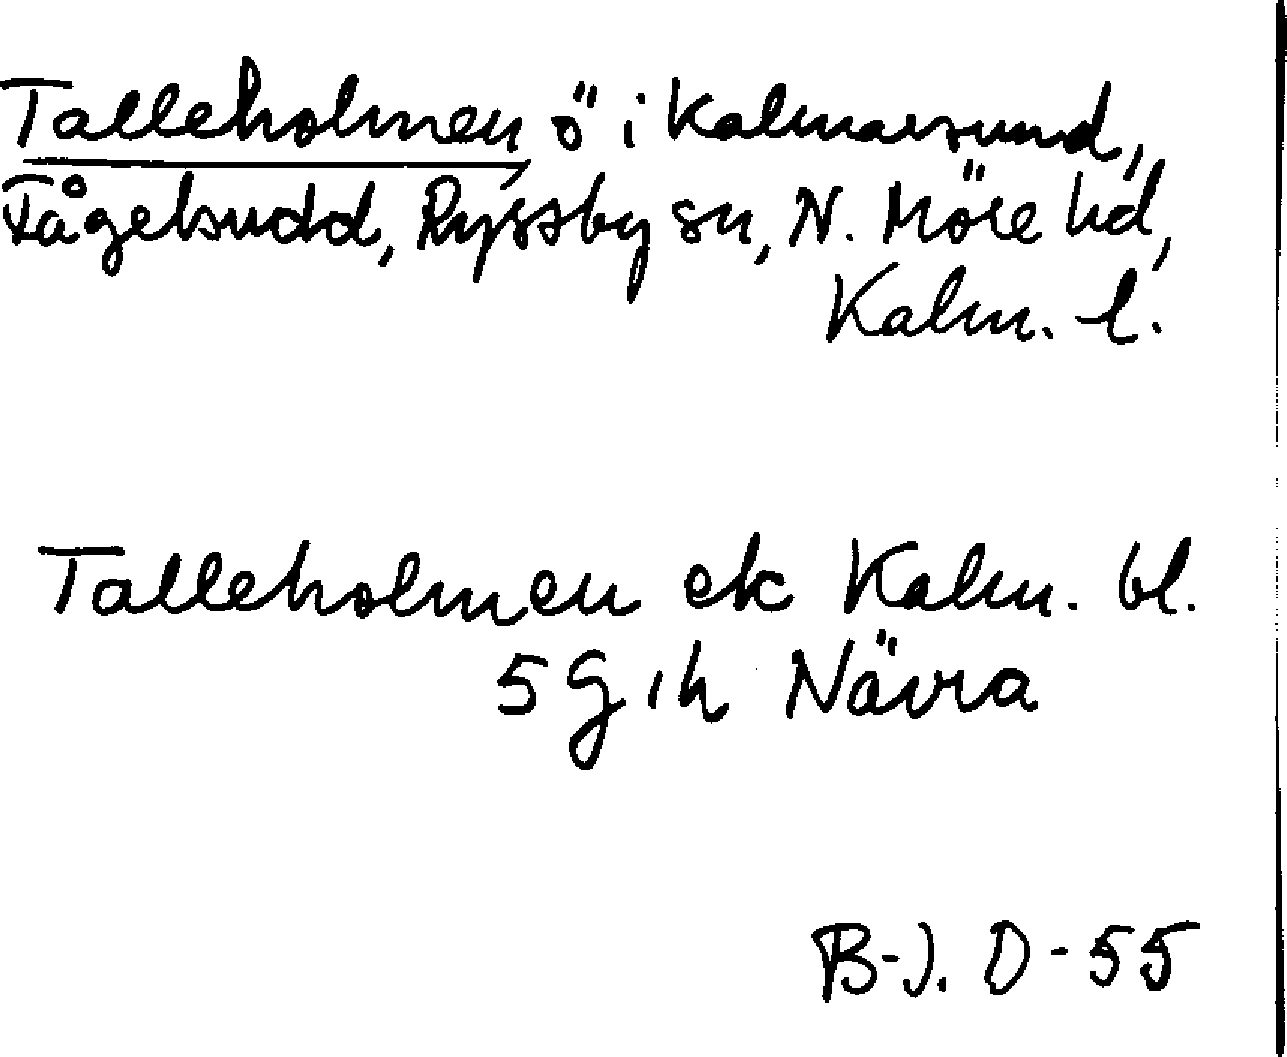 Talleholmen, ö i Kalmarsund,
Fågelsudd, Ryssby sn, N. Möre hd,
Kalm. l.
Talleholmen ek Kalm. bl.
5 G, h Nävra
B-J. D - 55